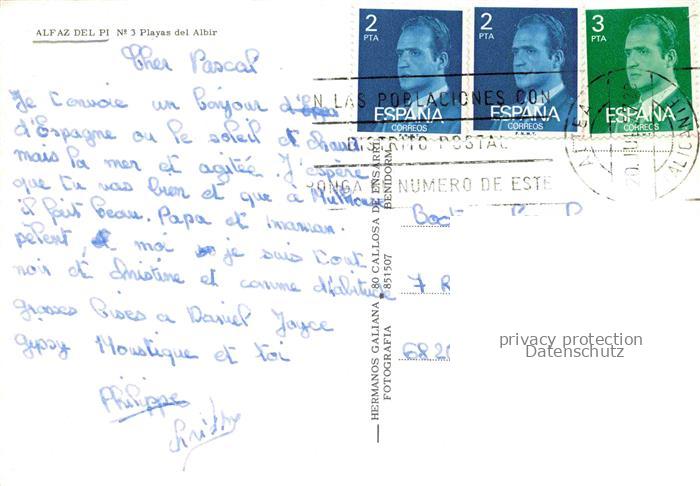 ALFAZ DEL PI Nº 3 Playas del Albir
Cher Pascal
Je t'envoie un bonjour
d'Espagne ou le soleil et chaud
mais la mer et agitée. J'espère
que tu vas bien et que a Mulhouse
il fait beau. Papa et maman
pèlent, moi je suis tout
noir et christine et comme d'habitude
grosses bises a Daniel Joyce
gipsy Moustique et toi
Philippe
2 PTA ESPAÑA CORREOS
2 PTA ESPAÑA CORREOS
3 PTA ESPAÑA CORREOS
EN LAS POBLACIONES CON
DISTRITO POSTAL
PONGA EL NUMERO DE ESTE
ALTEA
ALICANTE
HERMANOS GALIANA. 80 CALLOSA DE ENSARRIA
FOTOGRAFIA 851507 BENIDORM
7 R
6820
privacy protection
Datenschutz